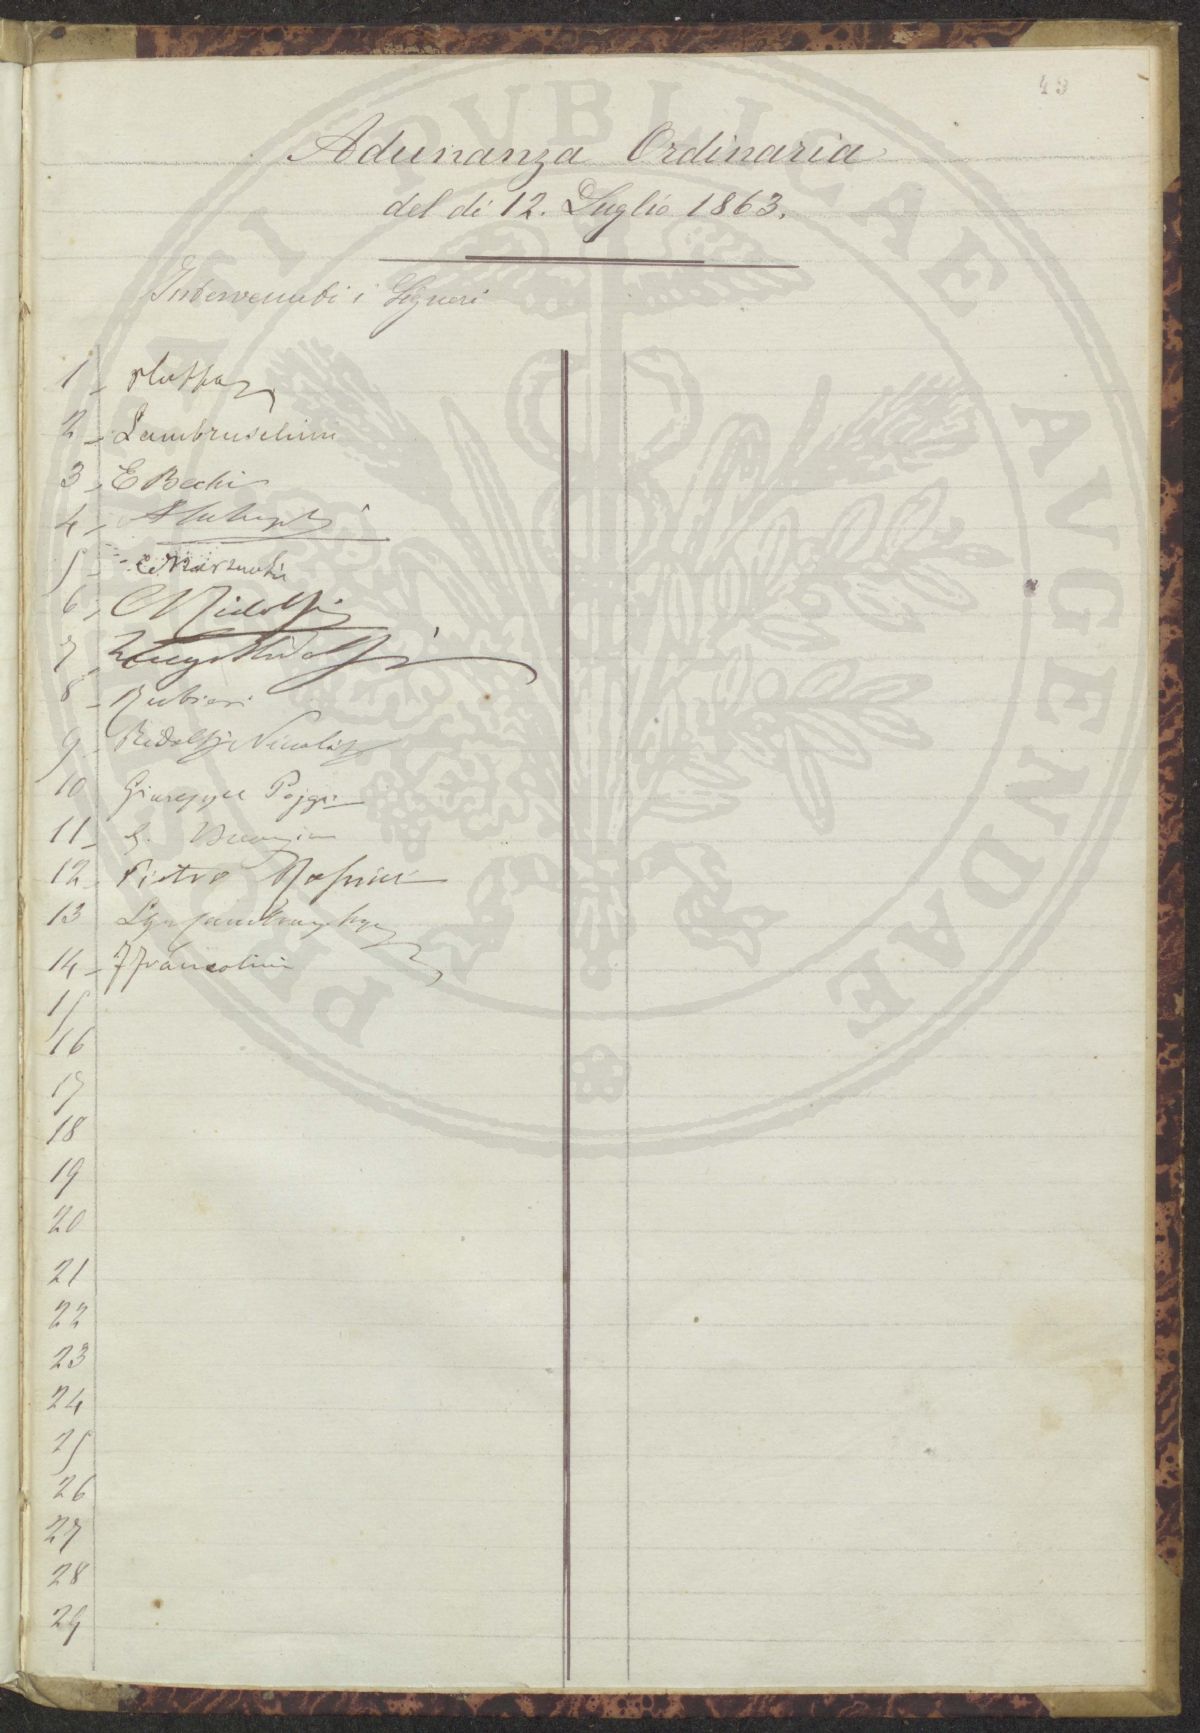 49
Adunanza Ordinaria
del dì 12. Luglio 1863.
Intervenuti i Signori
1
2 Lambruschini
3 E Bechi
4
5 C Marzuchi
6 C Ridolfi
7 Luigi Ridolfi
8 Rubieri
9 Ridolfi Niccolò
10 Giuseppe Poggi
11
12 Pietro
13
14 F Francolini
15
16
17
18
19
20
21
22
23
24
25
26
27
28
29
PROSPERITATI PVBLICAE AVGENDAE